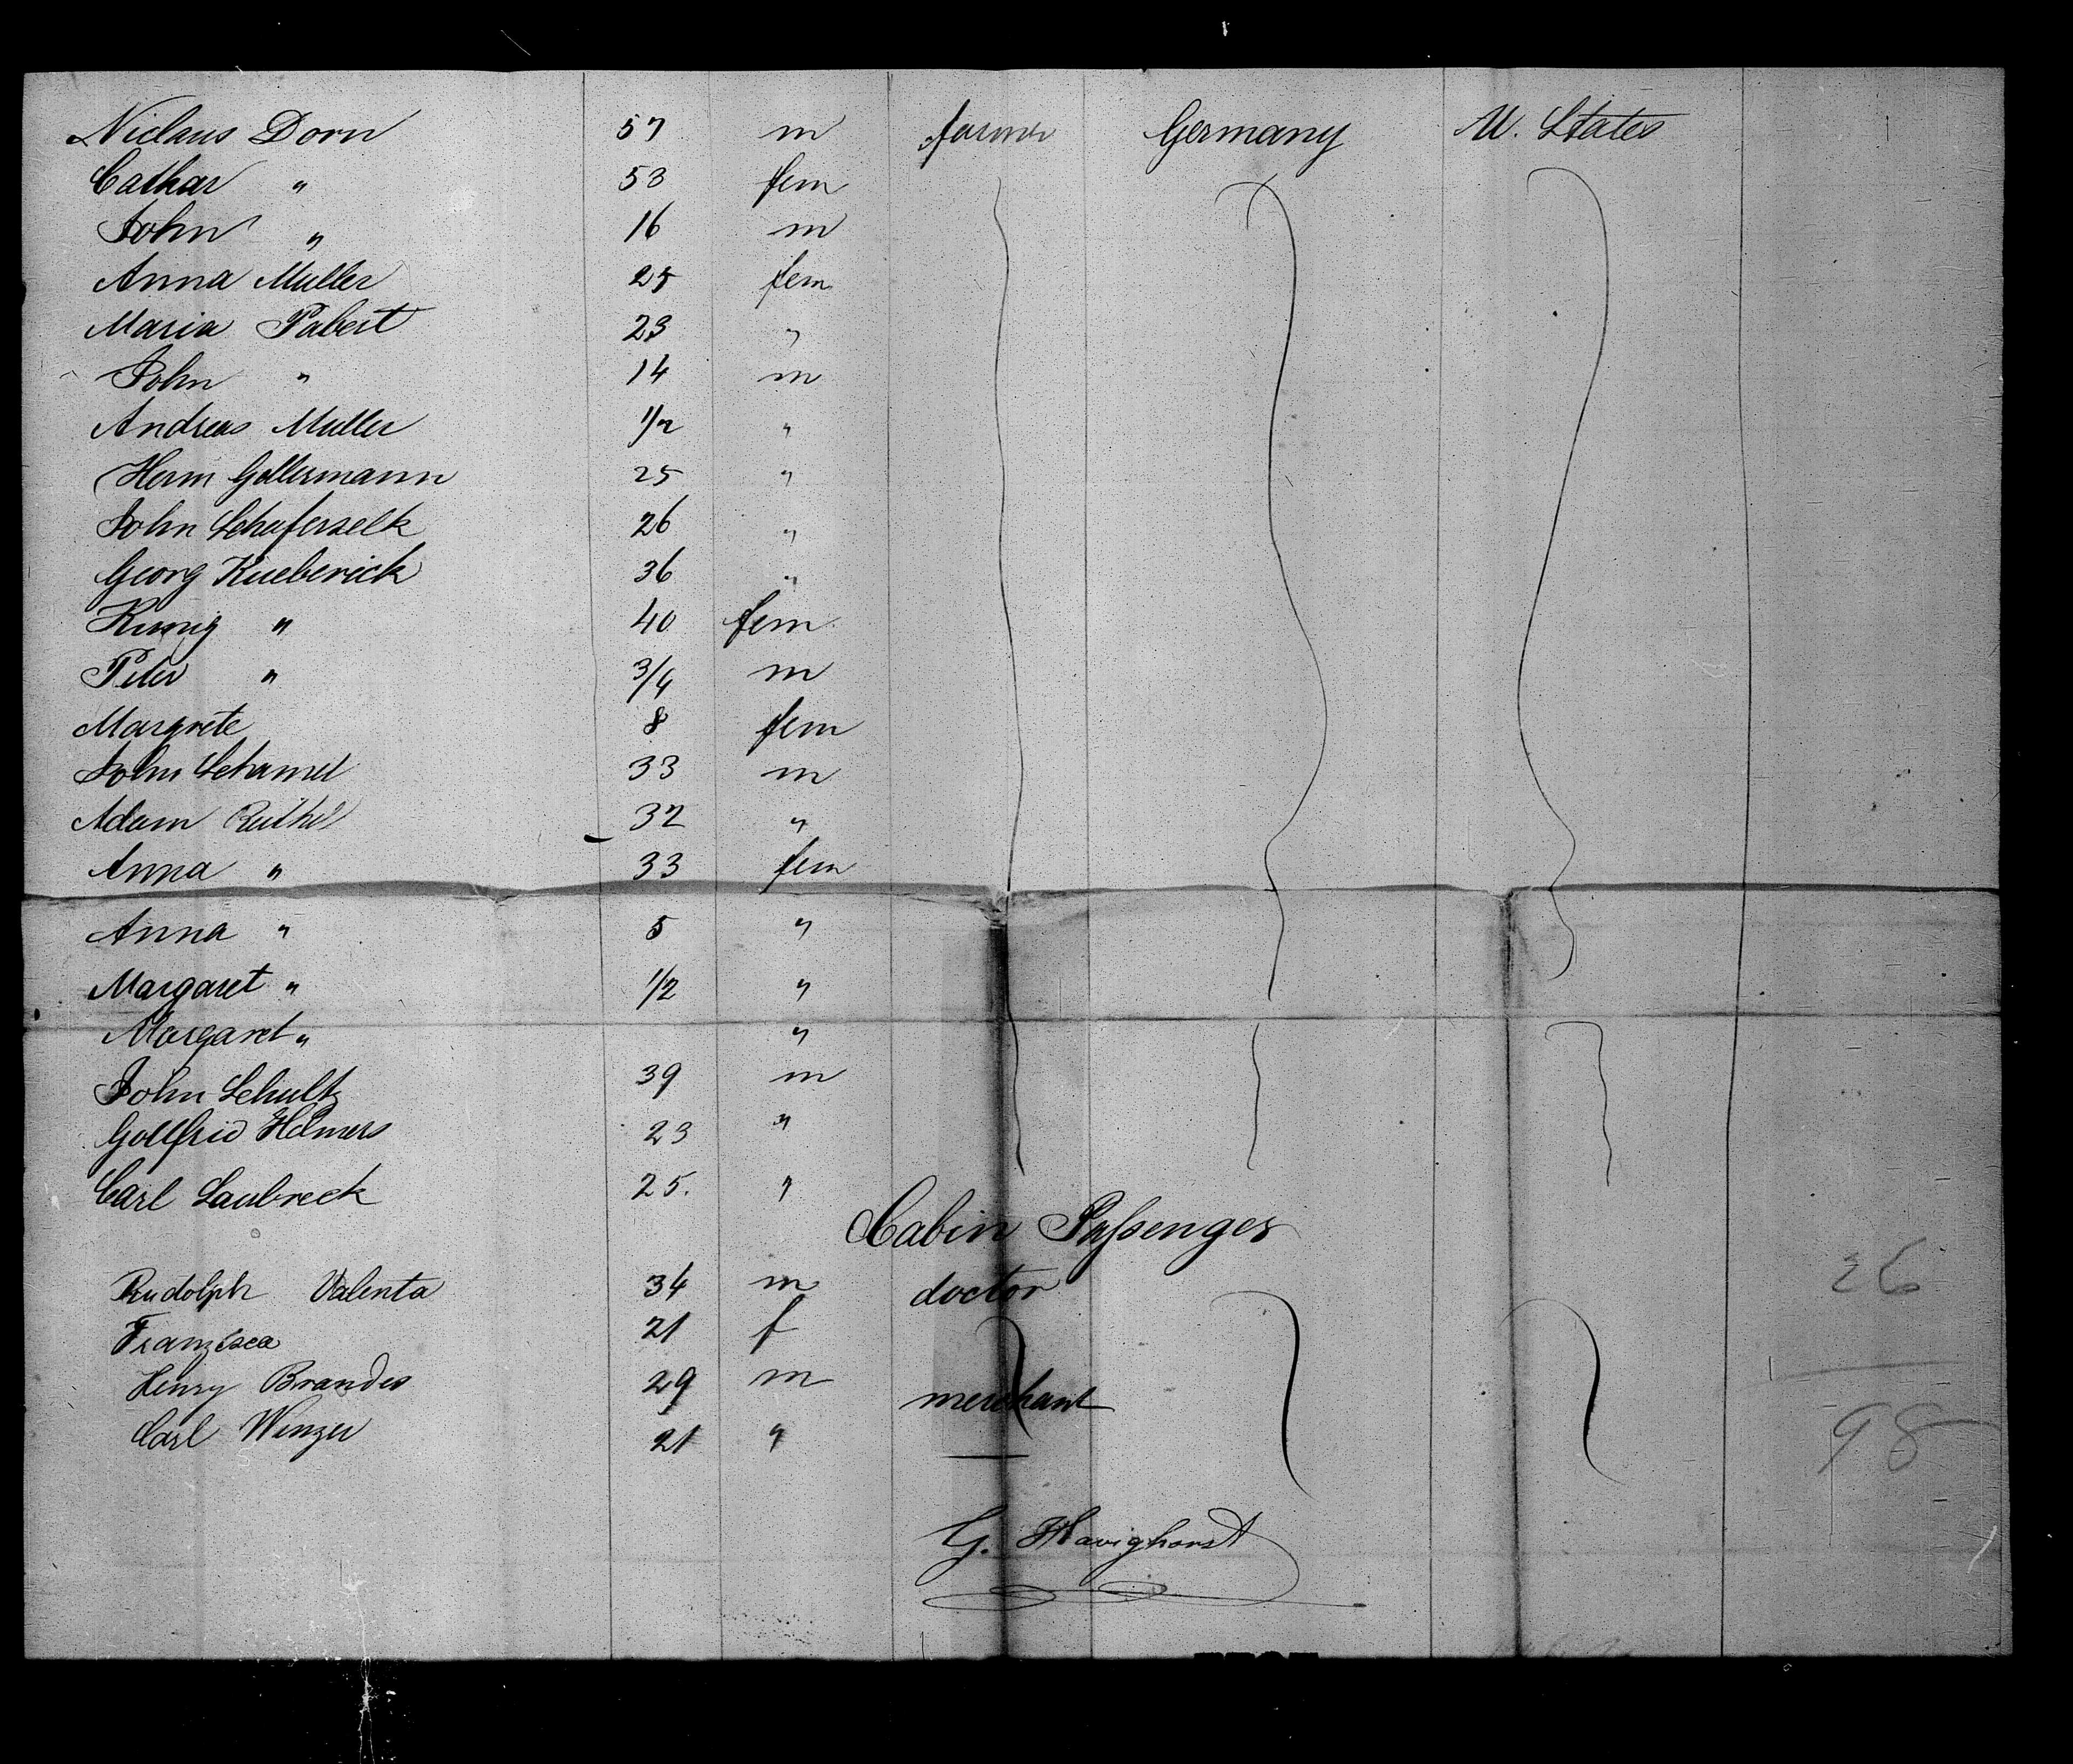 Niclaus Dorn 57 m farmer Germany U. States
Cathar " 53 fem
John " 16 m
Anna Muller 25 fem
Maria Pabert 23 "
John " 14 m
Andreas Muller 1/2 "
Herm Gollermann 25 "
John Schaferselk 26 "
Georg Kueberick 36 "
Kunig " 40 fem
Peter " 3/4 m
Margrete 8 fem
John Schamel 33 m
Adam Ruthel 32 "
Anna " 33 fem
Anna " 5 "
Margaret " 1/2 "
Margaret " "
John Schultz 39 m
Gottfried Helmers 23 "
Carl Laubreck 25. "
Cabin Passenger
Rudolph Valenta 34 m doctor
Franzisca 21 f
Henry Brandes 29 m merchant
Carl Winzer 21 "
26
98
G. Havighorst